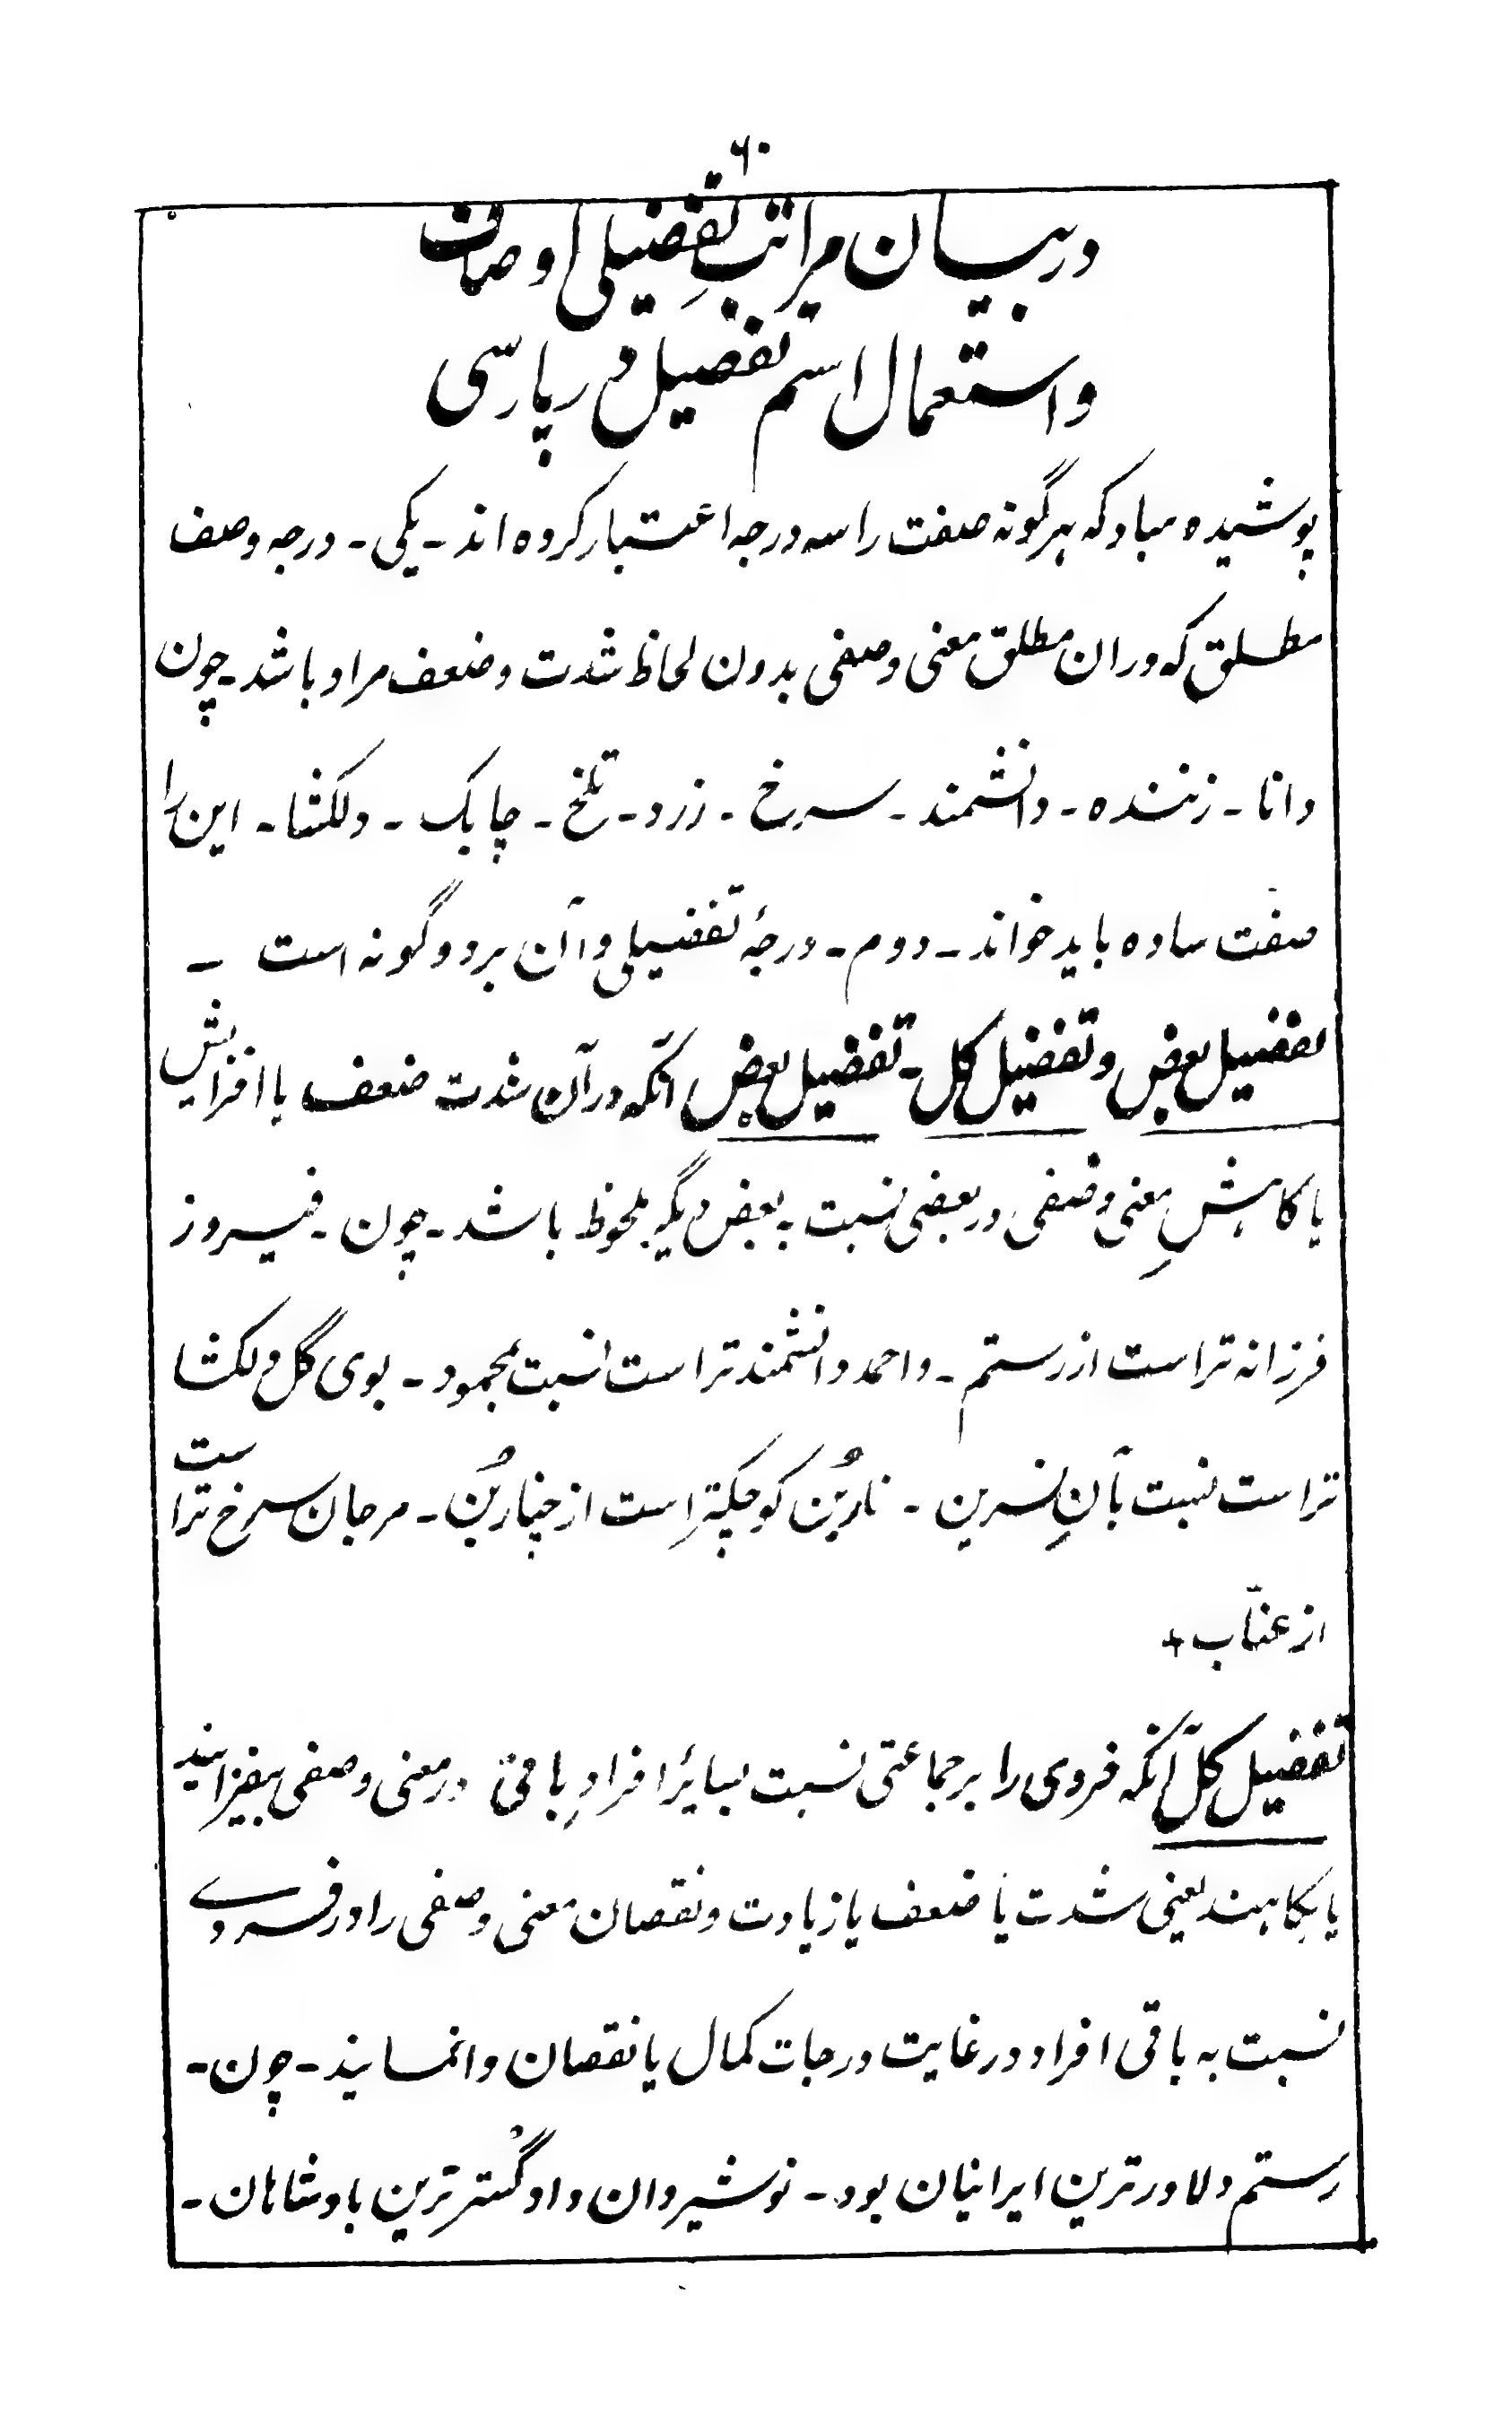 ۶۰
در بیان مراتبِ تفضیلی اوصاف
و استعمال اسم تفضیل در پارسی
پوشیده مباد که هرگونه صفت را سه درجه اعتبار کرده اند - یکی - درجه وصف
مطلق که دران مطلق معنی وصفی بدون لحاظ شدت و ضعف مراد باشد - چون
دانا - زننده - دانشمند - سرخ - زرد - تلخ - چابک - دلکشا - این را
صفت ساده باید خواند - دوم - درجۂ تفضیلی و آن بر دو گونه است -
تفضیل بعض و تفضیل کل - تفضیل بعض آنکه در آن شدت ضعف با افزایش
یا کاهشِ معنی وصفی در بعضی نسبت به بعض دیگر ملحوظ باشد - چون - فیروز
فرزانه تر است از رستم - و احمد دانشمند تر است نسبت بمحمود - بوی گل دلکشا
تر است نسبت بآنِ نسرین - ناربُن کوچکتر است از چناربُن - مرجان سرخ تر است
از عنّاب +
تفضیل کل آنکه فردی را بر جماعتی نسبت بسایرٔ افرادِ باقی در معنی وصفی بیفزایند
یا بکاهند یعنی شدت یا ضعف یا زیادت و نقصان معنی وصفی را در فردے
نسبت به باقی افراد در غایت درجات کمال یا نقصان وانمایند - چون -
رستم دلاورترین ایرانیان بود - نوشیروان دادگُسترترین بادشاهان -